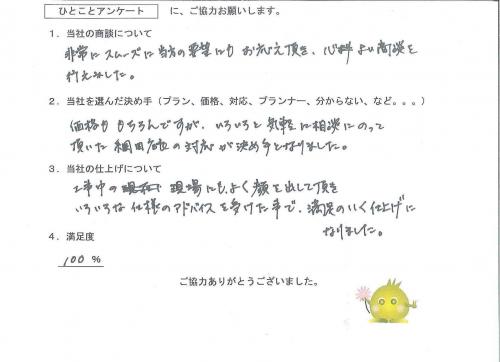 ひとことアンケート に、ご協力お願いします。
1．当社の商談について
非常にスムーズに当方の要望にもお応え頂き、心地よい商談を
行えました。
2．当社を選んだ決め手（プラン、価格、対応、プランナー、分からない、など。。。）
価格ももちろんですが、いろいろと気軽に相談にのって
頂いた細田 の対応が決め手となりました。
3．当社の仕上げについて
工事中の 現場にもよく顔を出して頂き
いろいろな仕様のアドバイスを受けた事で、満足のいく仕上げに
なりました。
4．満足度
100 %
ご協力ありがとうございました。